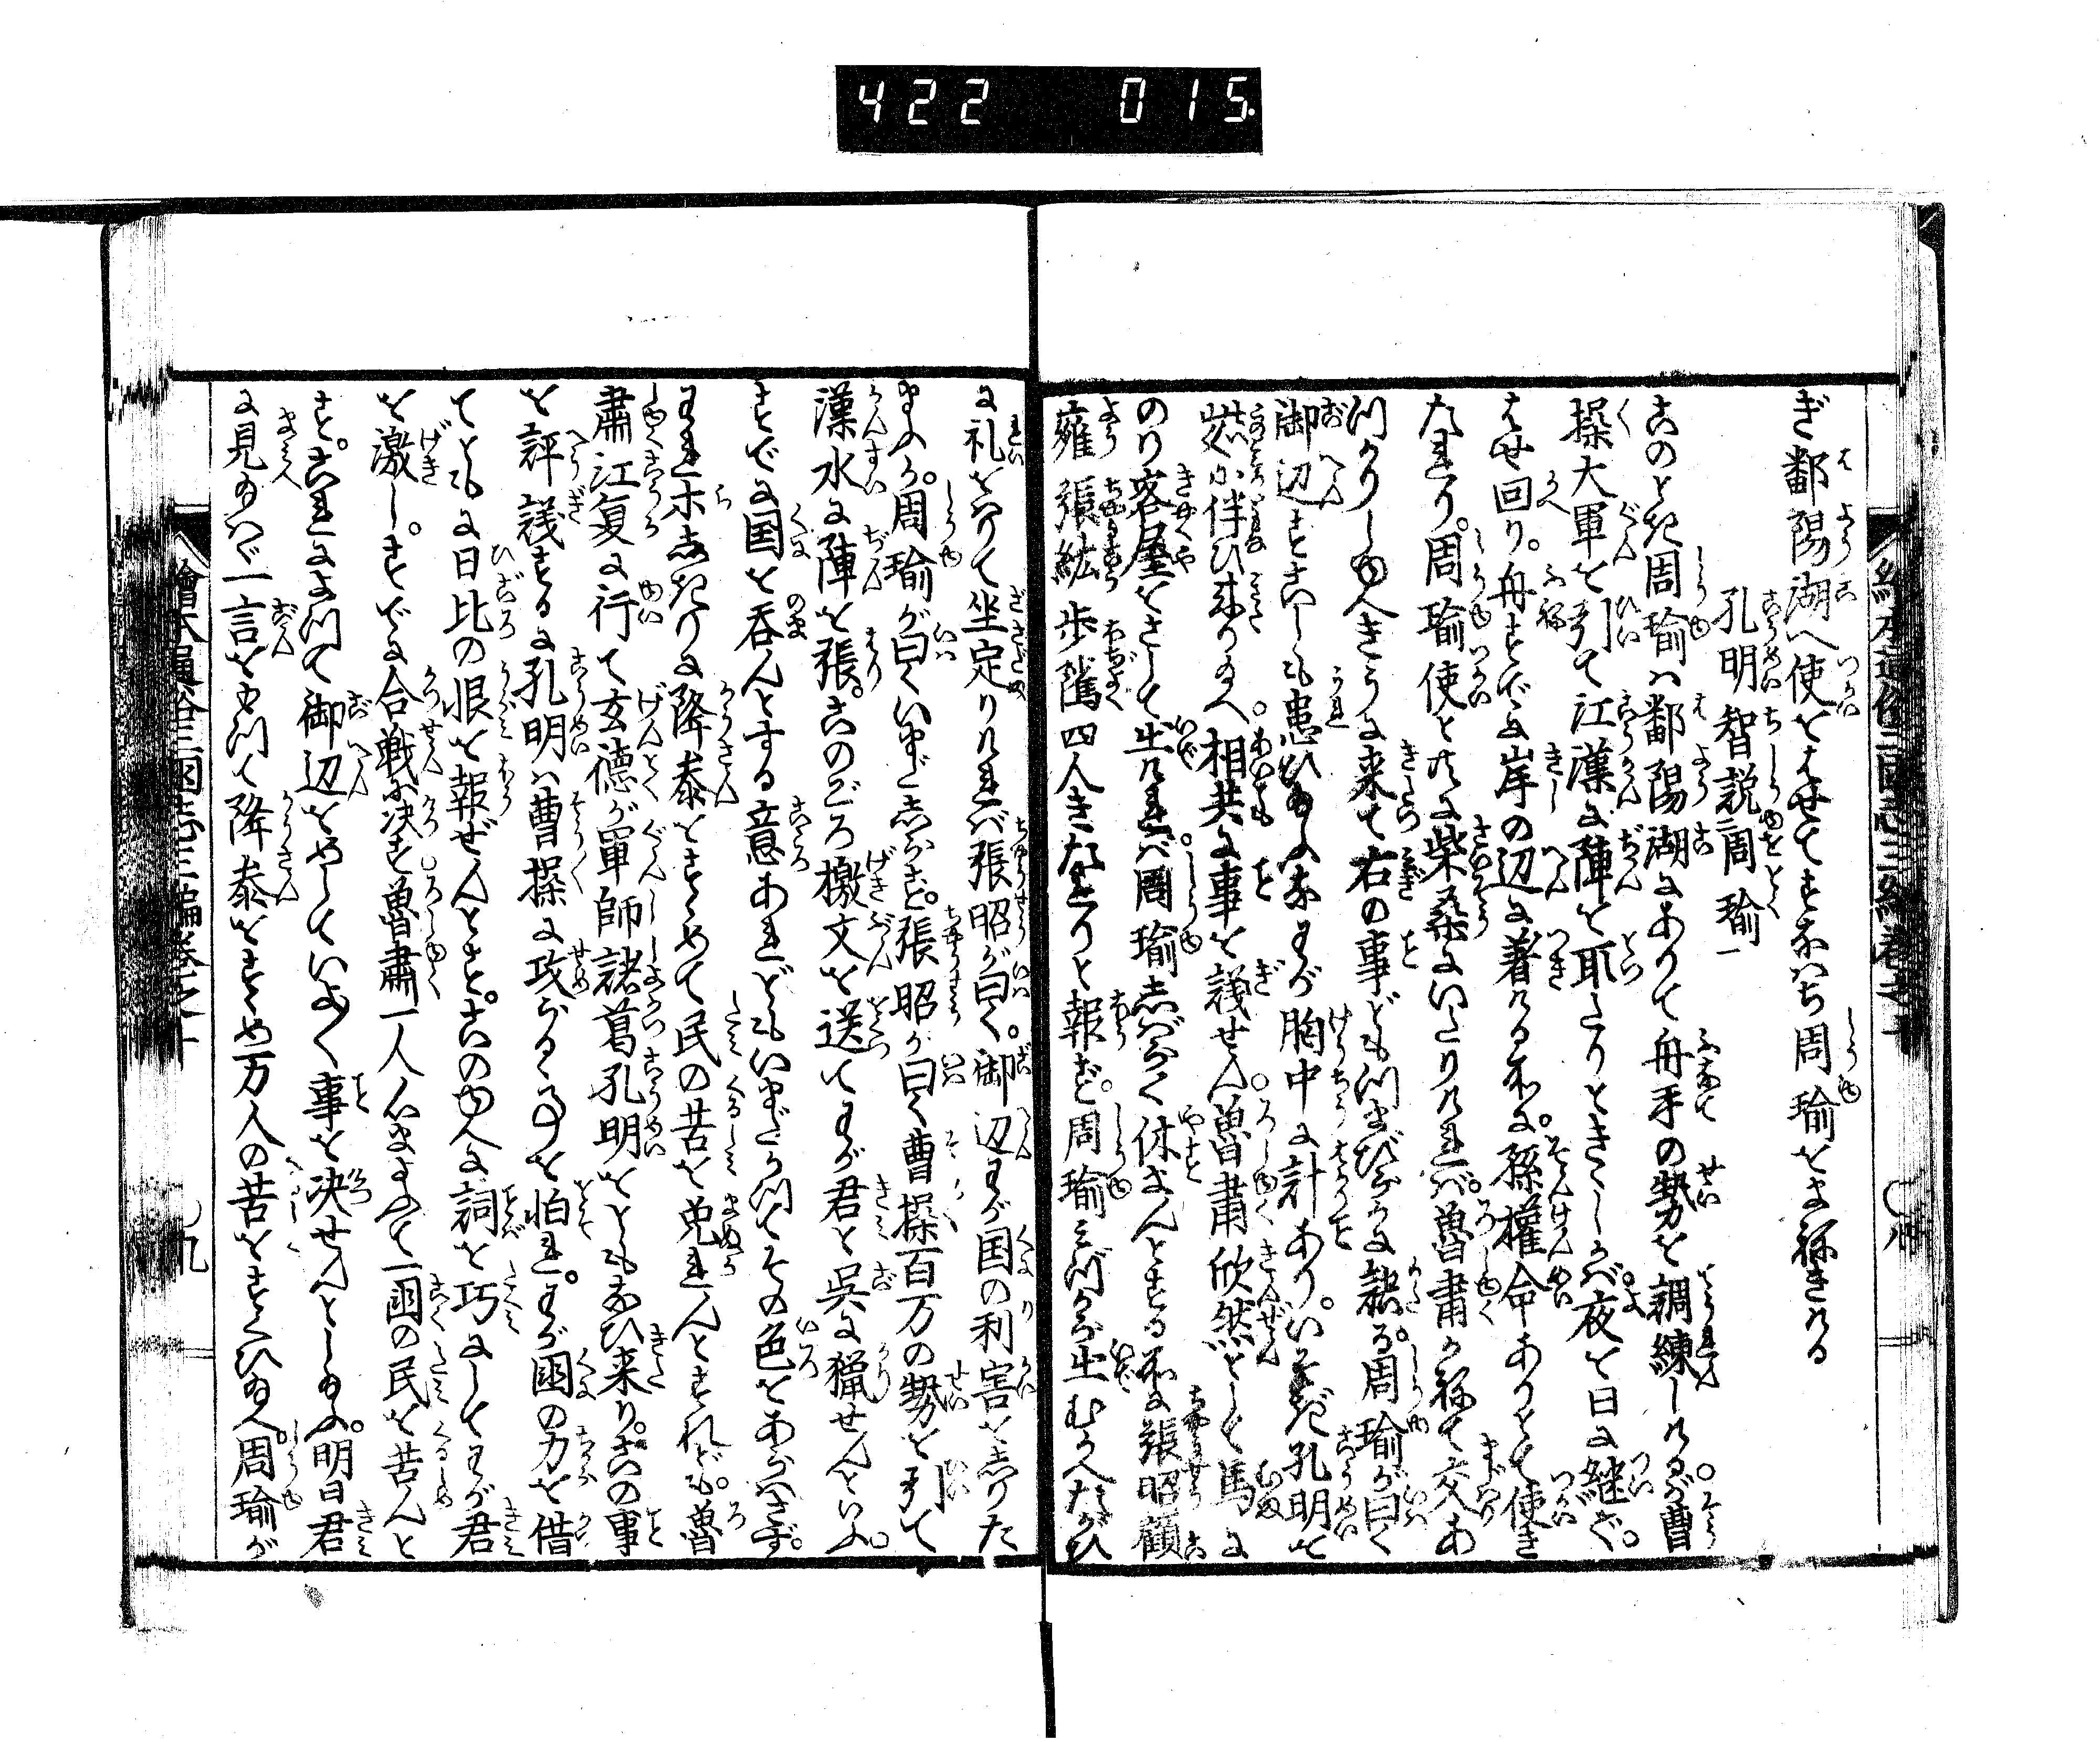 422 015
ぎ鄱陽湖へ使をはせてすなハち周瑜をまねきける
孔明智説周瑜一
このとき周瑜ハ鄱陽湖にありて舟手の勢を調練しけるが曹
操大軍を引て江漢に陣を取たりときこしかバ夜を日に継で
はせ回り。舟すでに岸の辺に着ける所に。孫権命ありとて使き
たれり。周瑜使と共に柴桑にいたりけれバ。魯粛かねて交あ
つかりしゆへきうに来て右の事ども
つまびらかに訣る。周瑜が曰く
御辺すこしも患ひ給ふなわが胸中に計あり。いそぎ孔明を
伴ひ来り給へ。相共に事を議せん。魯粛欣然として馬に
のり客屋をさして出けれバ。周瑜しバらく休まんとする所に張昭顧
雍張紘歩隲四人きたれりと報ず。周瑜ミづから出むかへたがひ
に礼をハりて坐定りけれバ張昭が曰く。御辺わが国の利害をしりた
まふか。周瑜が曰くいまだしらず。張昭が曰く曹操百万の勢を引て
漢水に陣を張。このごろ檄文を送てわが君と呉に猟せんといふ。
すでに国を呑んとする意あれどもいまだかつてその色をあらハさず。
われ等しきりに降参をすゝめて民の苦を免れんとすれども。魯
粛江夏に行て玄徳が軍師諸葛孔明をともなひ来り。この事
を評議するに孔明ハ曹操に攻らるゝ事を怕れ。わが国の力を借
てともに日比の恨を報ぜんとす。このゆへに詞を巧にしてわが君
を激し。すでに合戦に决す魯粛一人心まよふて一国の民を苦んと
す。これによつて御辺をやしていよ〱事を决せんとし給ふ。明日君
に見給ハゞ一言をもつて降参をすゝめ万人の苦をすくひ給へ。周瑜が
繪本通俗三国志三編巻之十
九